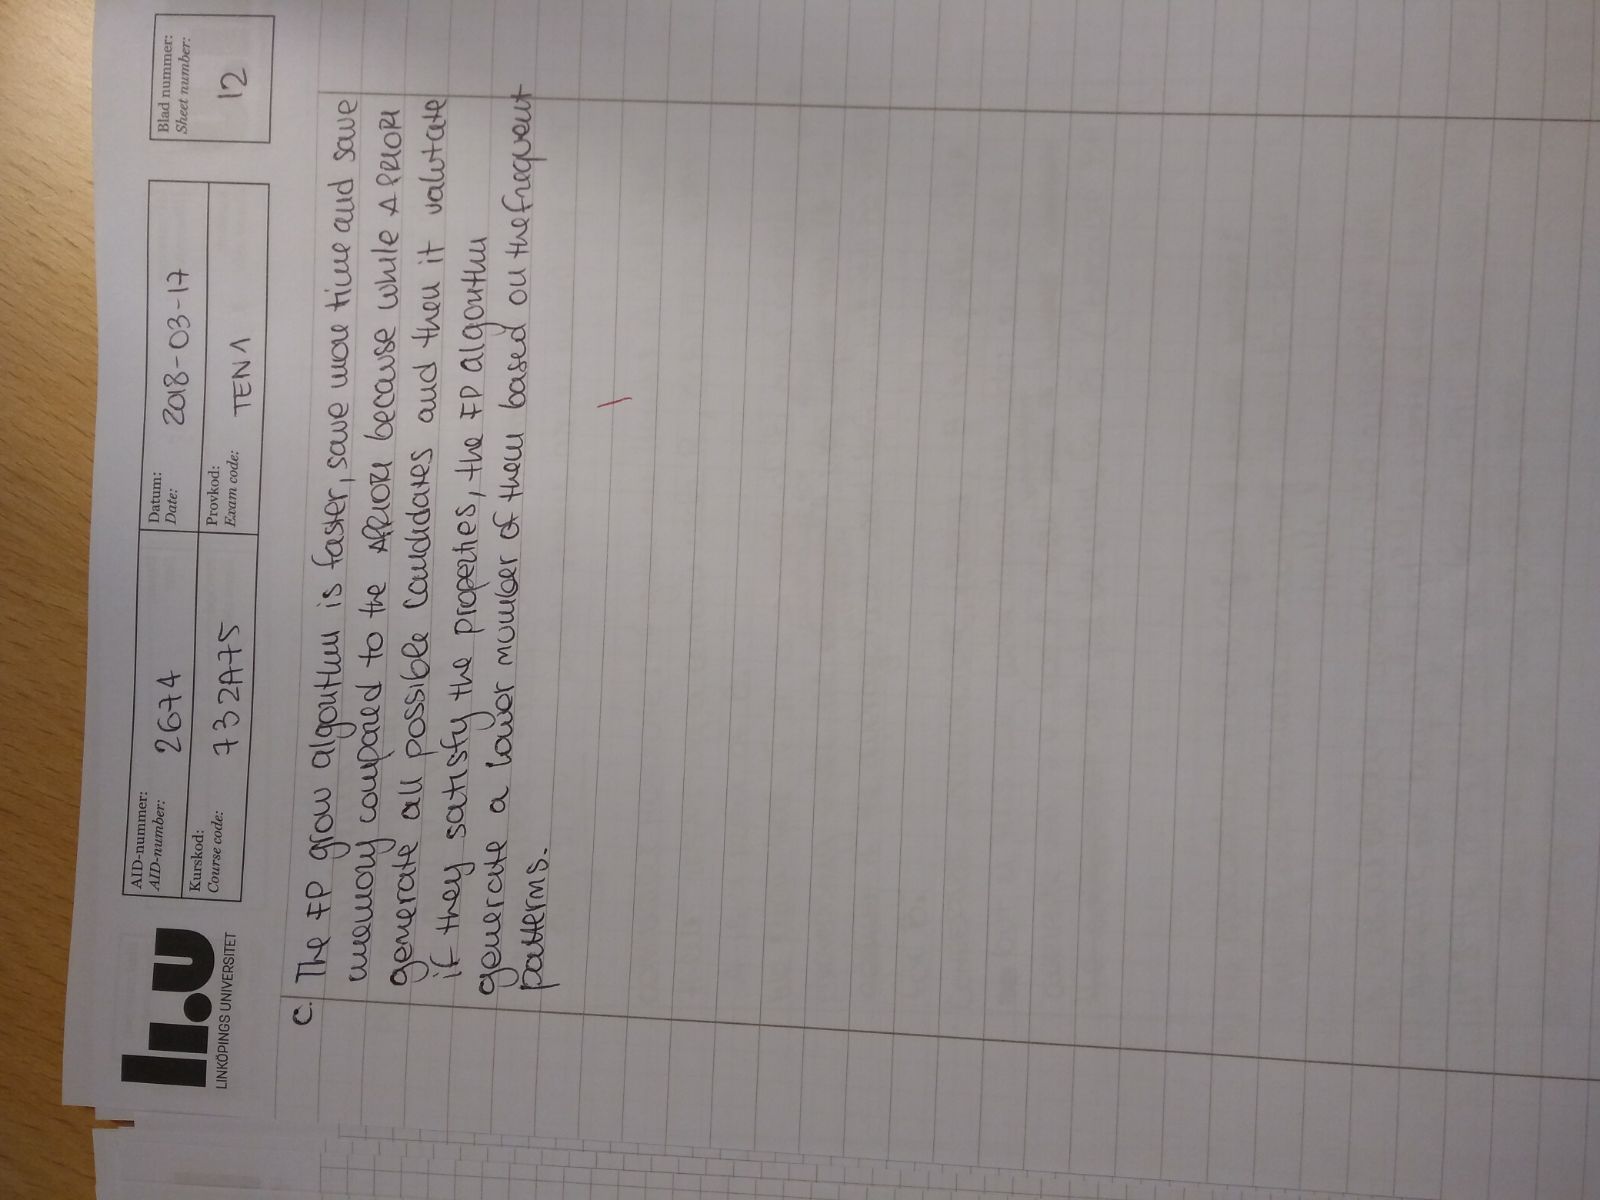 li.u
LINKÖPINGS UNIVERSITET
AID-nummer:
AID-number: 2674
Datum:
Date: 2018-03-17
Kurskod:
Course code: 732A75
Provkod:
Exam code: TEN1
Blad nummer:
Sheet number:
12
C. The FP grow algorithm is faster, save more time and save
memory compared to the APRIORI because while APRIORI
generate all possible candidates and then it valutate
if they satisfy the properties, the FP algorithm
generate a lower number of them based on the frequent
patterns.
1